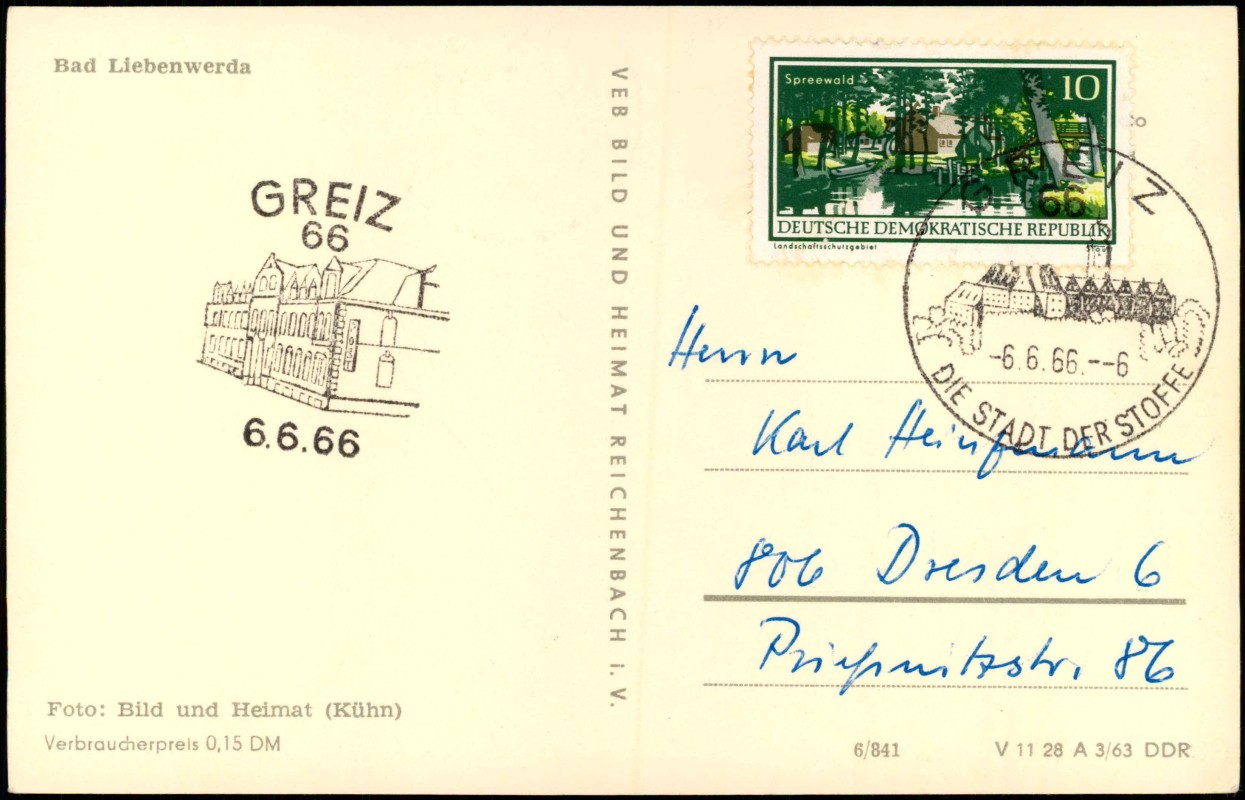 Bad Liebenwerda
GREIZ
66
6.6.66
Foto: Bild und Heimat (Kühn)
Verbraucherpreis 0,15 DM
VEB BILD UND HEIMAT REICHENBACH i. V.
Spreewald
10
DEUTSCHE DEMOKRATISCHE REPUBLIK
Landschaftsschutzgebiet
GREIZ
66
-6.6.66.--6
DIE STADT DER STOFFE
Herrn
Karl
806 Dresden 6
Prießnitzstr. 86
6/841
V 11 28 A 3/63 DDR